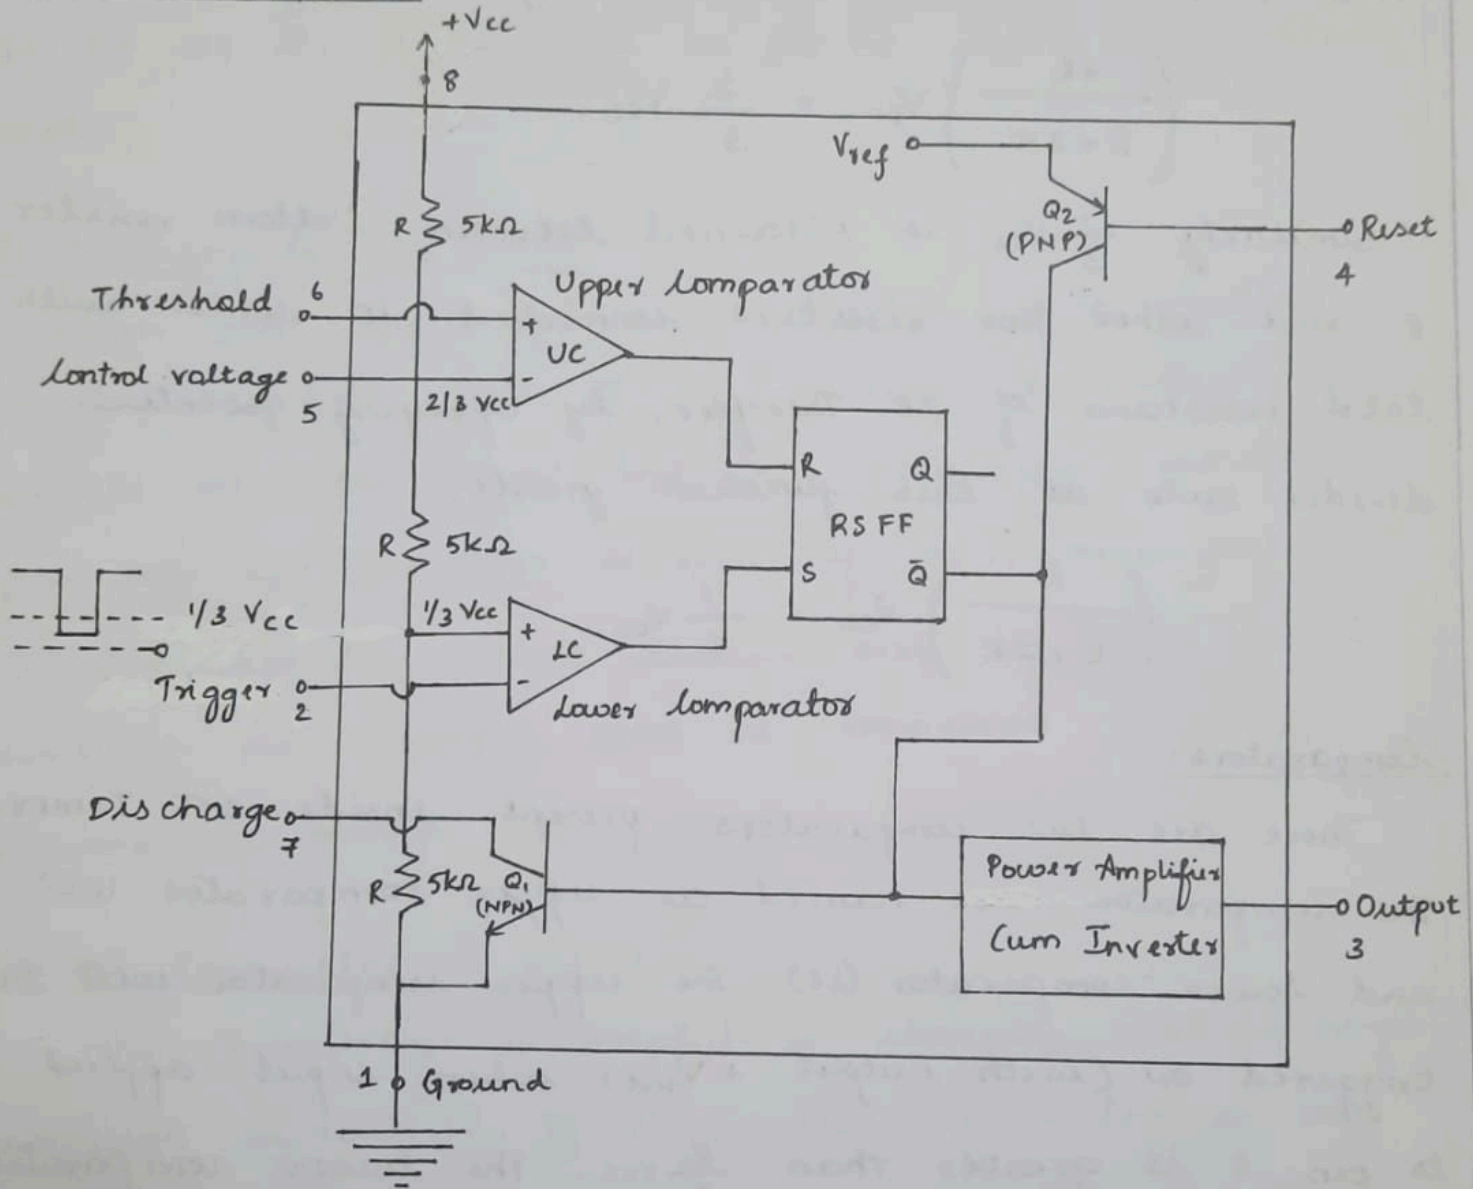 +Vcc
8
Vref
R 5kΩ
Q2
(PNP)
Reset
4
Threshold 6
Upper Comparator
+
UC
-
Control voltage
5
2/3 Vcc
R Q
RS FF
S Q̄
R 5kΩ
1/3 Vcc
1/3 Vcc
+
LC
-
Trigger
2
Lower Comparator
Discharge
7
R 5kΩ
Q1
(NPN)
Power Amplifier
Cum Inverter
Output
3
1 Ground